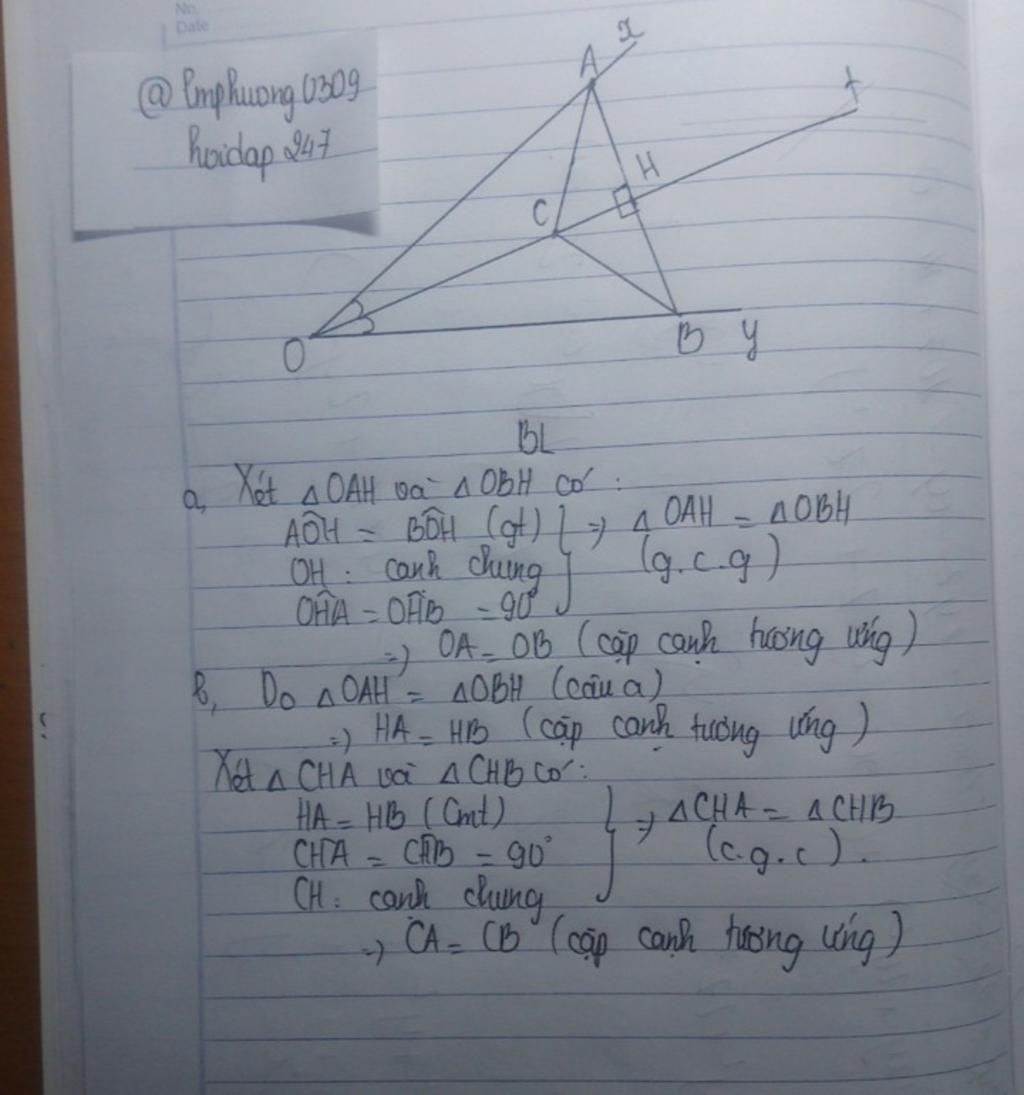 No.
Date
@ lmphuong0309
hoidap 247
A
x
t
H
C
O
B
y
BL
a, Xét △OAH và △OBH có :
AÔH = BÔH (gt)
⇒ △OAH = △OBH
OH : cạnh chung
(g.c.g)
OĤA = OĤB = 90°
⇒ OA = OB (cặp cạnh tương ứng)
b, Do △OAH = △OBH (câu a)
⇒ HA = HB (cặp cạnh tương ứng)
Xét △CHA và △CHB có :
HA = HB (Cmt)
⇒ △CHA = △CHB
CĤA = CĤB = 90°
(c.g.c).
CH : cạnh chung
⇒ CA = CB (cặp cạnh tương ứng)